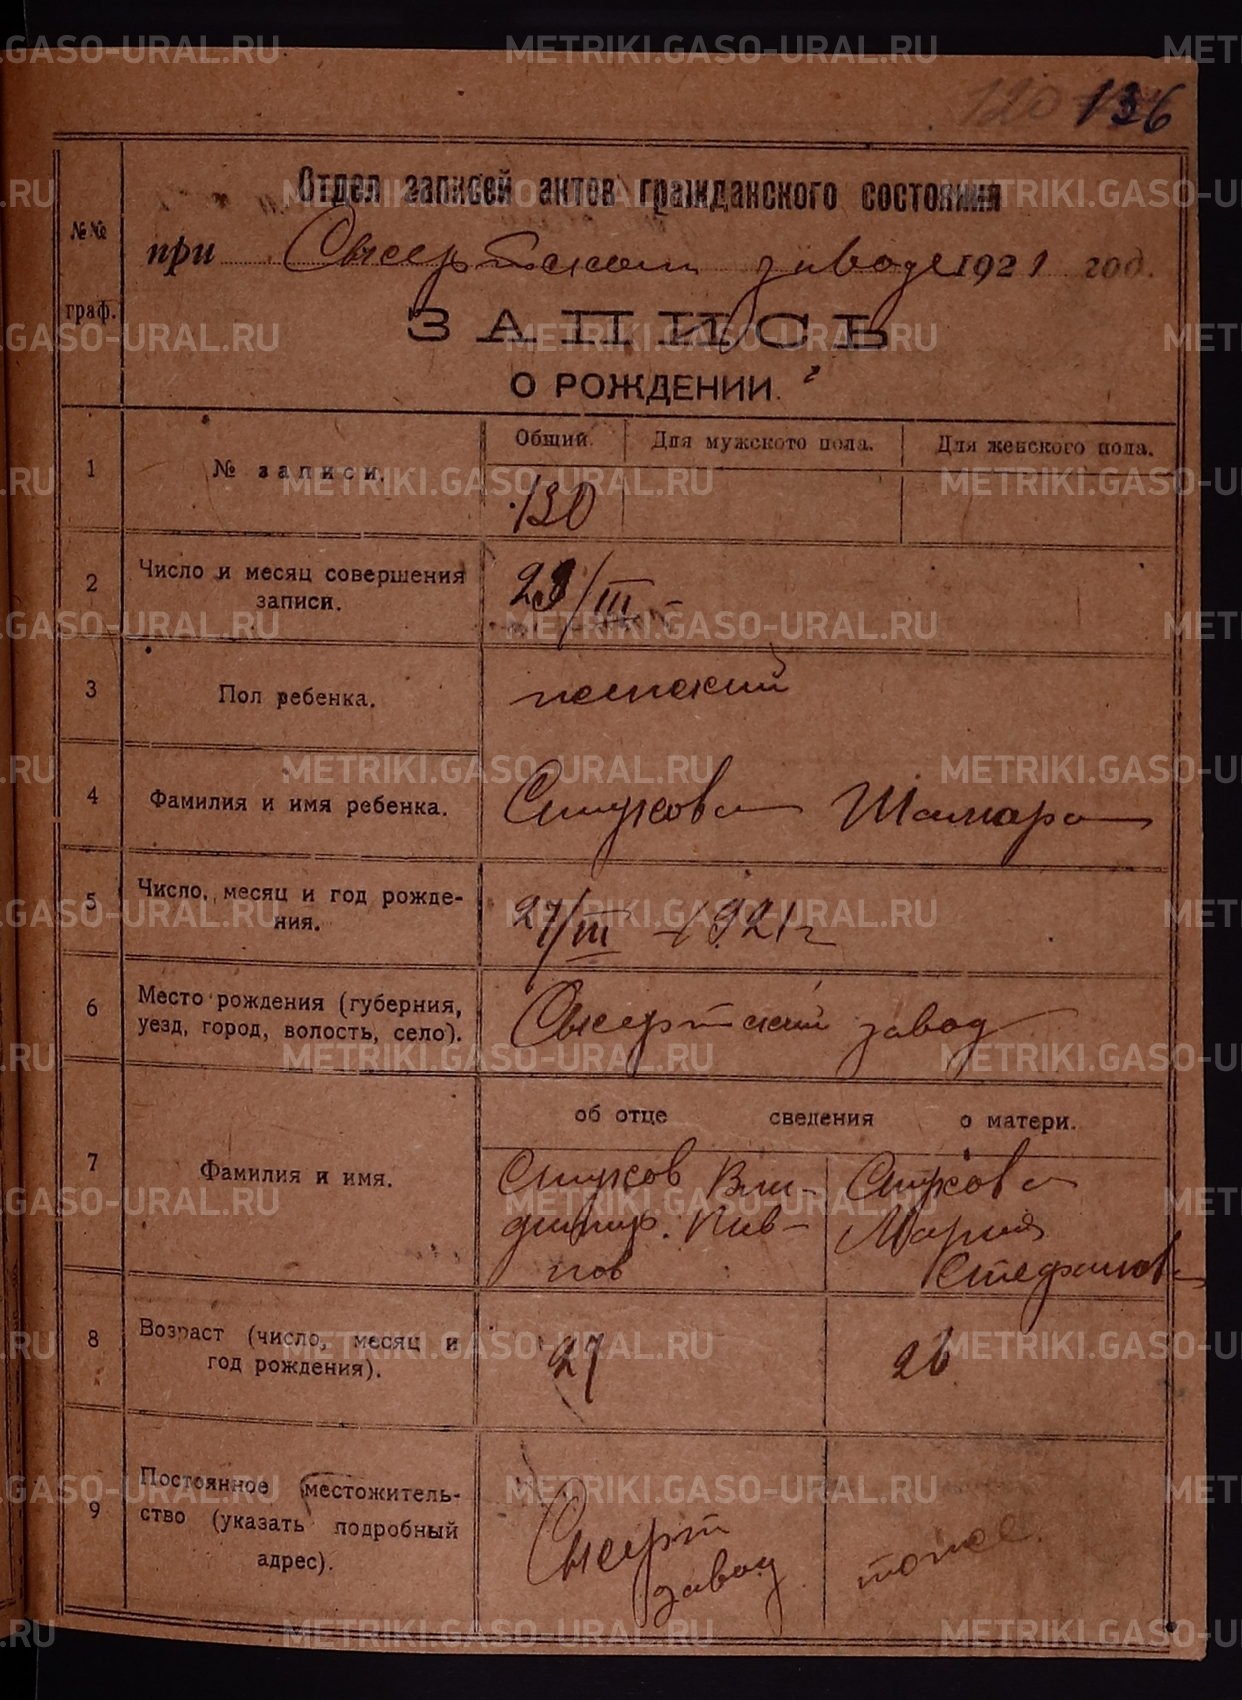 120 136
Отдел записей актов гражданского состояния
№№ граф.
при Сысертском заводе 1921 год.
ЗАПИСЬ
О РОЖДЕНИИ.
1 № записи. Общий. Для мужского пола. Для женского пола.
130
2 Число и месяц совершения
записи.
29/III
3 Пол ребенка. женский
4 Фамилия и имя ребенка. Стукова Тамара
5 Число, месяц и год рожде-
ния.
27/III 1921 г
6 Место рождения (губерния,
уезд, город, волость, село).
Сысертский завод
об отце сведения о матери.
7 Фамилия и имя.
Стуков Вла-
димир. Пав-
лов
Стукова
Мария
Степанов
8 Возраст (число, месяц и
год рождения).
27 26
9 Постоянное местожитель-
ство (указать подробный
адрес).
Сысерт
завод
тоже.
METRIKI.GASO-URAL.RU